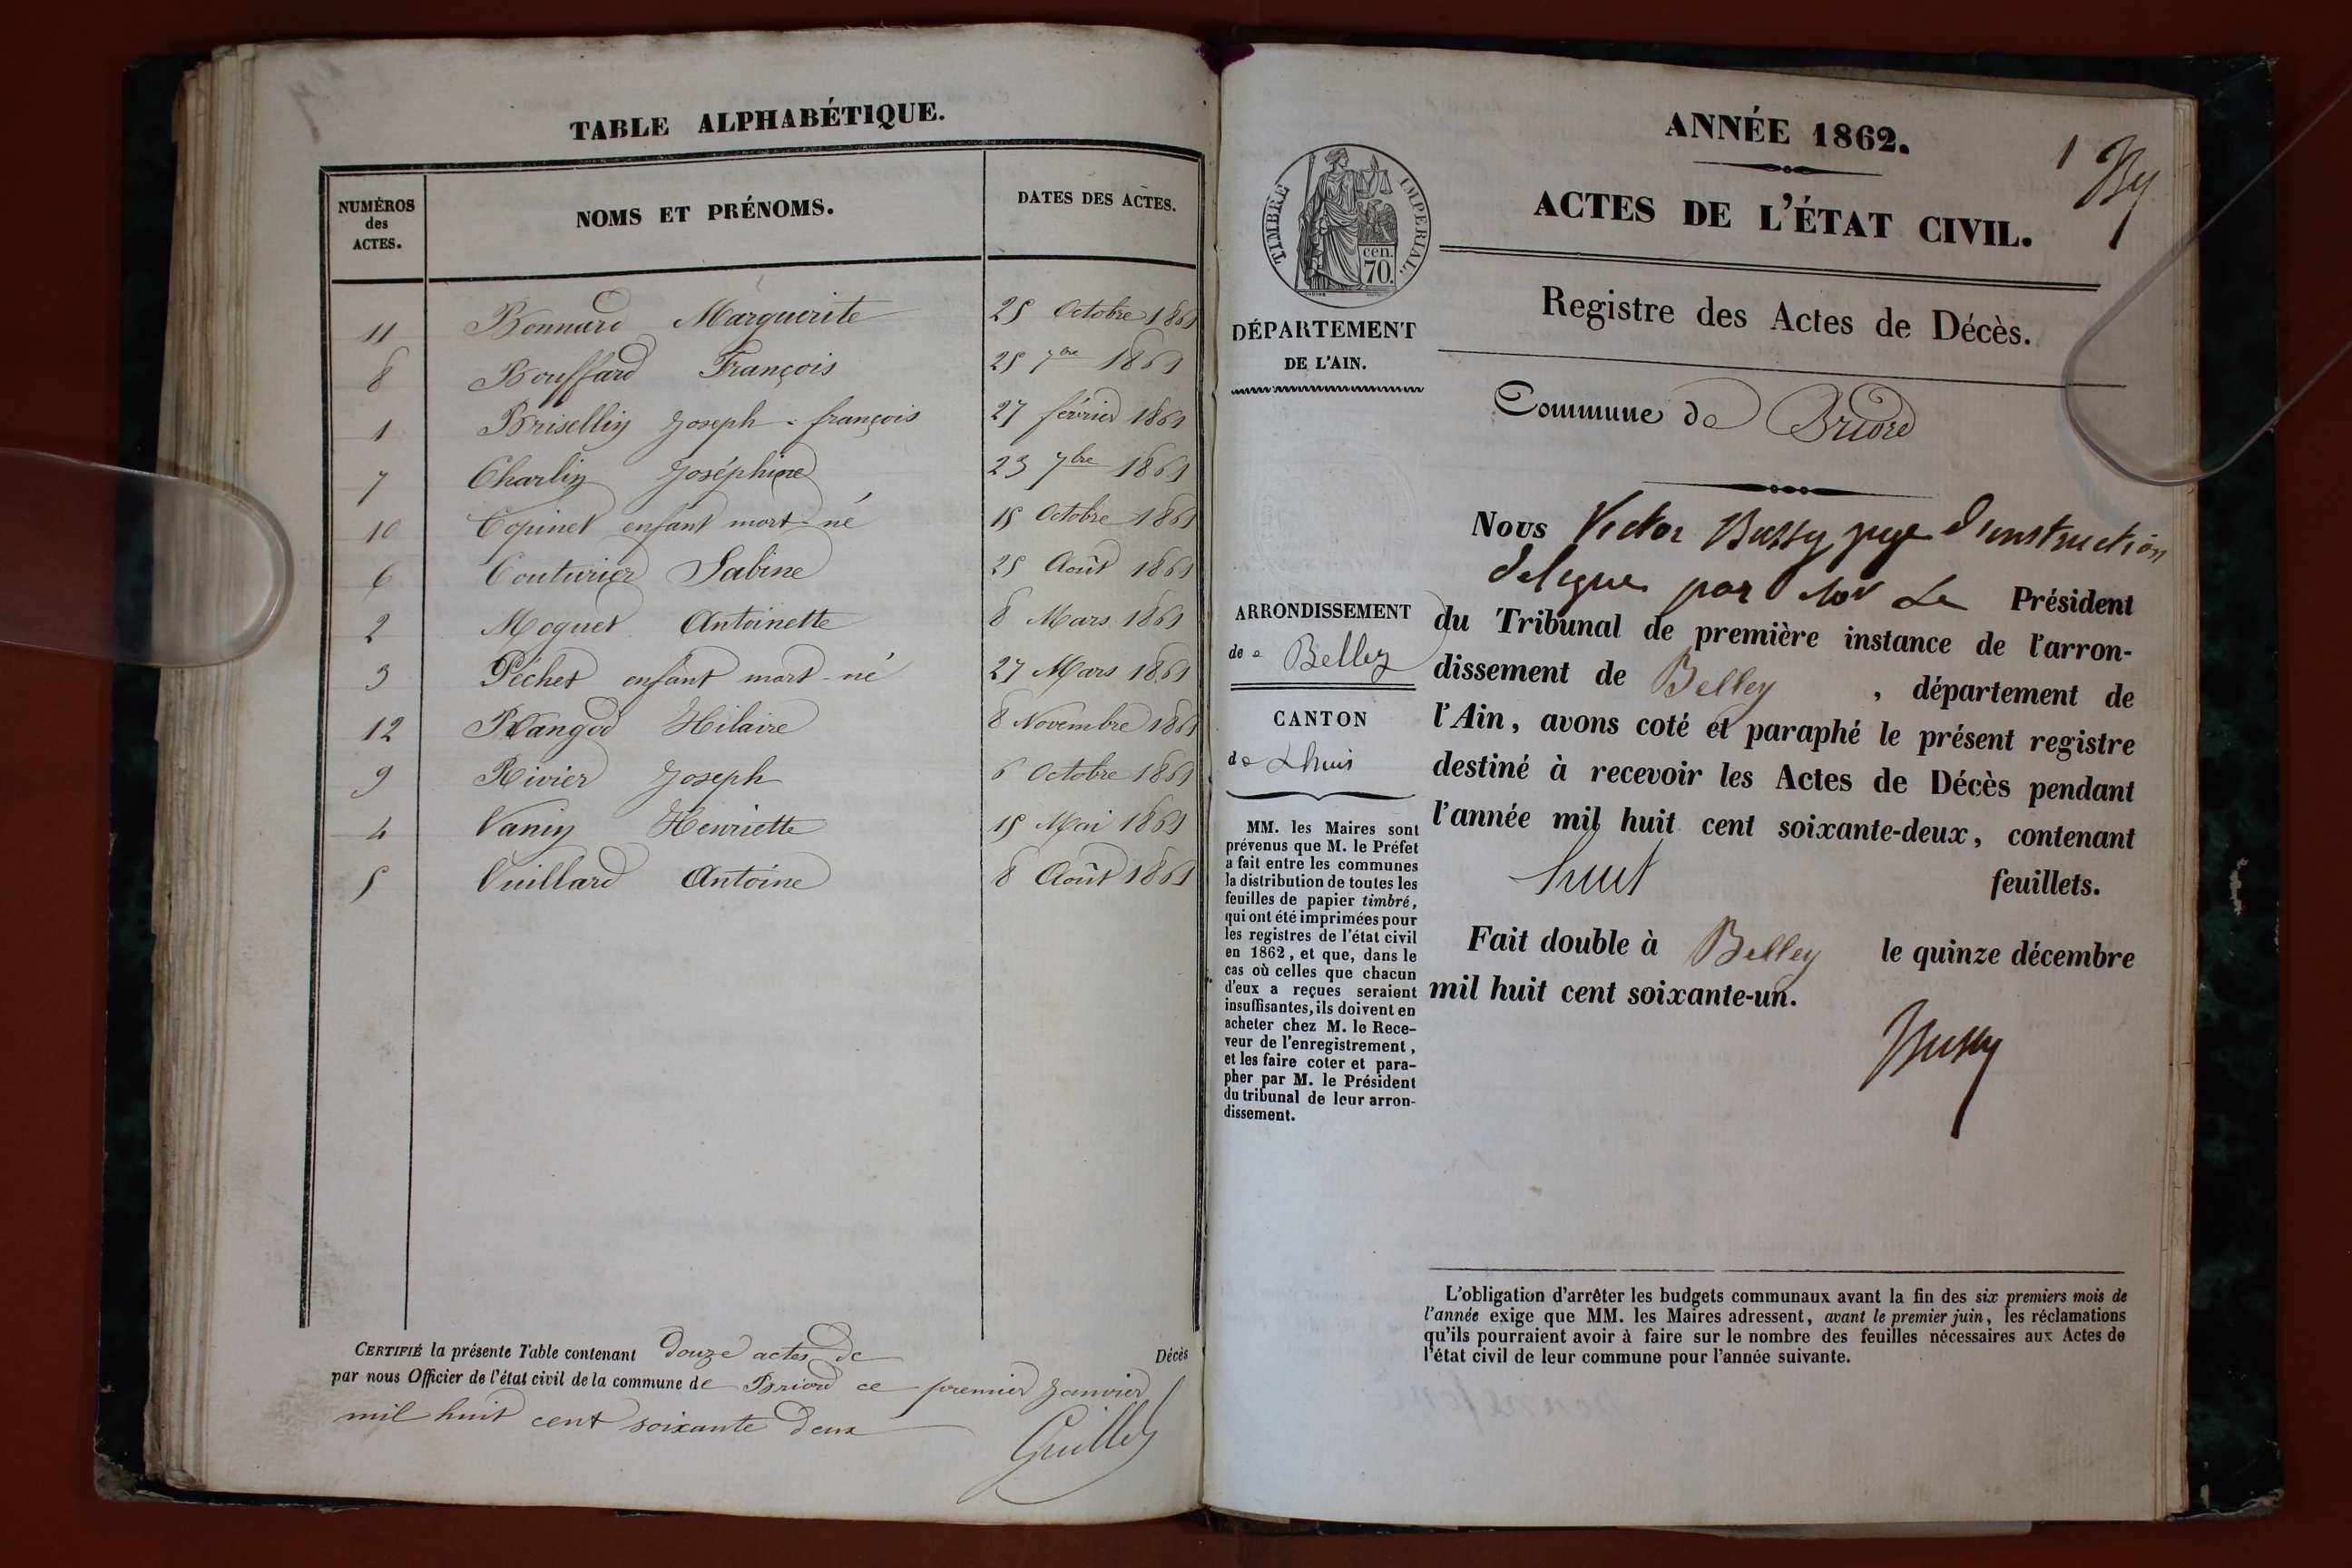 TABLE ALPHABÉTIQUE.
NUMÉROS
des
ACTES.
NOMS ET PRÉNOMS.
DATES DES ACTES.
11 Bonnard Marguerite 25 Octobre 1861
8 Bouffard François 25 7bre 1861
1 Brisellin Joseph-françois 27 février 1861
7 Charlin Joséphine 23 7bre 1861
10 Copinet enfant mort-né 15 Octobre 1861
6 Couturier Sabine 25 Août 1861
2 Moquet Antoinette 8 Mars 1861
3 Péchet enfant mort-né 27 Mars 1861
12 Rangod Hilaire 8 Novembre 1861
9 Rivier Joseph 6 Octobre 1861
4 Vanin Henriette 15 Mai 1861
5 Vuillard Antoine 8 Août 1861
CERTIFIÉ la présente Table contenant douze actes de Décès
par nous Officier de l'état civil de la commune de Briord ce premier Janvier
mil huit cent soixante deux
Guillet
1 By
ANNÉE 1862.
ACTES DE L'ÉTAT CIVIL.
TIMBRE IMPERIAL.
cen.
70.
DÉPARTEMENT
DE L'AIN.
Registre des Actes de Décès.
Commune de Briord
ARRONDISSEMENT
de Belley
CANTON
de Lhuis
MM. les Maires sont
prévenus que M. le Préfet
a fait entre les communes
la distribution de toutes les
feuilles de papier timbré,
qui ont été imprimées pour
les registres de l'état civil
en 1862, et que, dans le
cas où celles que chacun
d'eux a reçues seraient
insuffisantes, ils doivent en
acheter chez M. le Rece-
veur de l'enregistrement,
et les faire coter et para-
pher par M. le Président
du tribunal de leur arron-
dissement.
Nous Victor Bussy juge d'instruction
delegue par Mor Le Président
du Tribunal de première instance de l'arron-
dissement de Belley, département de
l'Ain, avons coté et paraphé le présent registre
destiné à recevoir les Actes de Décès pendant
l'année mil huit cent soixante-deux, contenant
huit feuillets.
Fait double à Belley le quinze décembre
mil huit cent soixante-un.
Bussy
L'obligation d'arrêter les budgets communaux avant la fin des six premiers mois de
l'année exige que MM. les Maires adressent, avant le premier juin, les réclamations
qu'ils pourraient avoir à faire sur le nombre des feuilles nécessaires aux Actes de
l'état civil de leur commune pour l'année suivante.